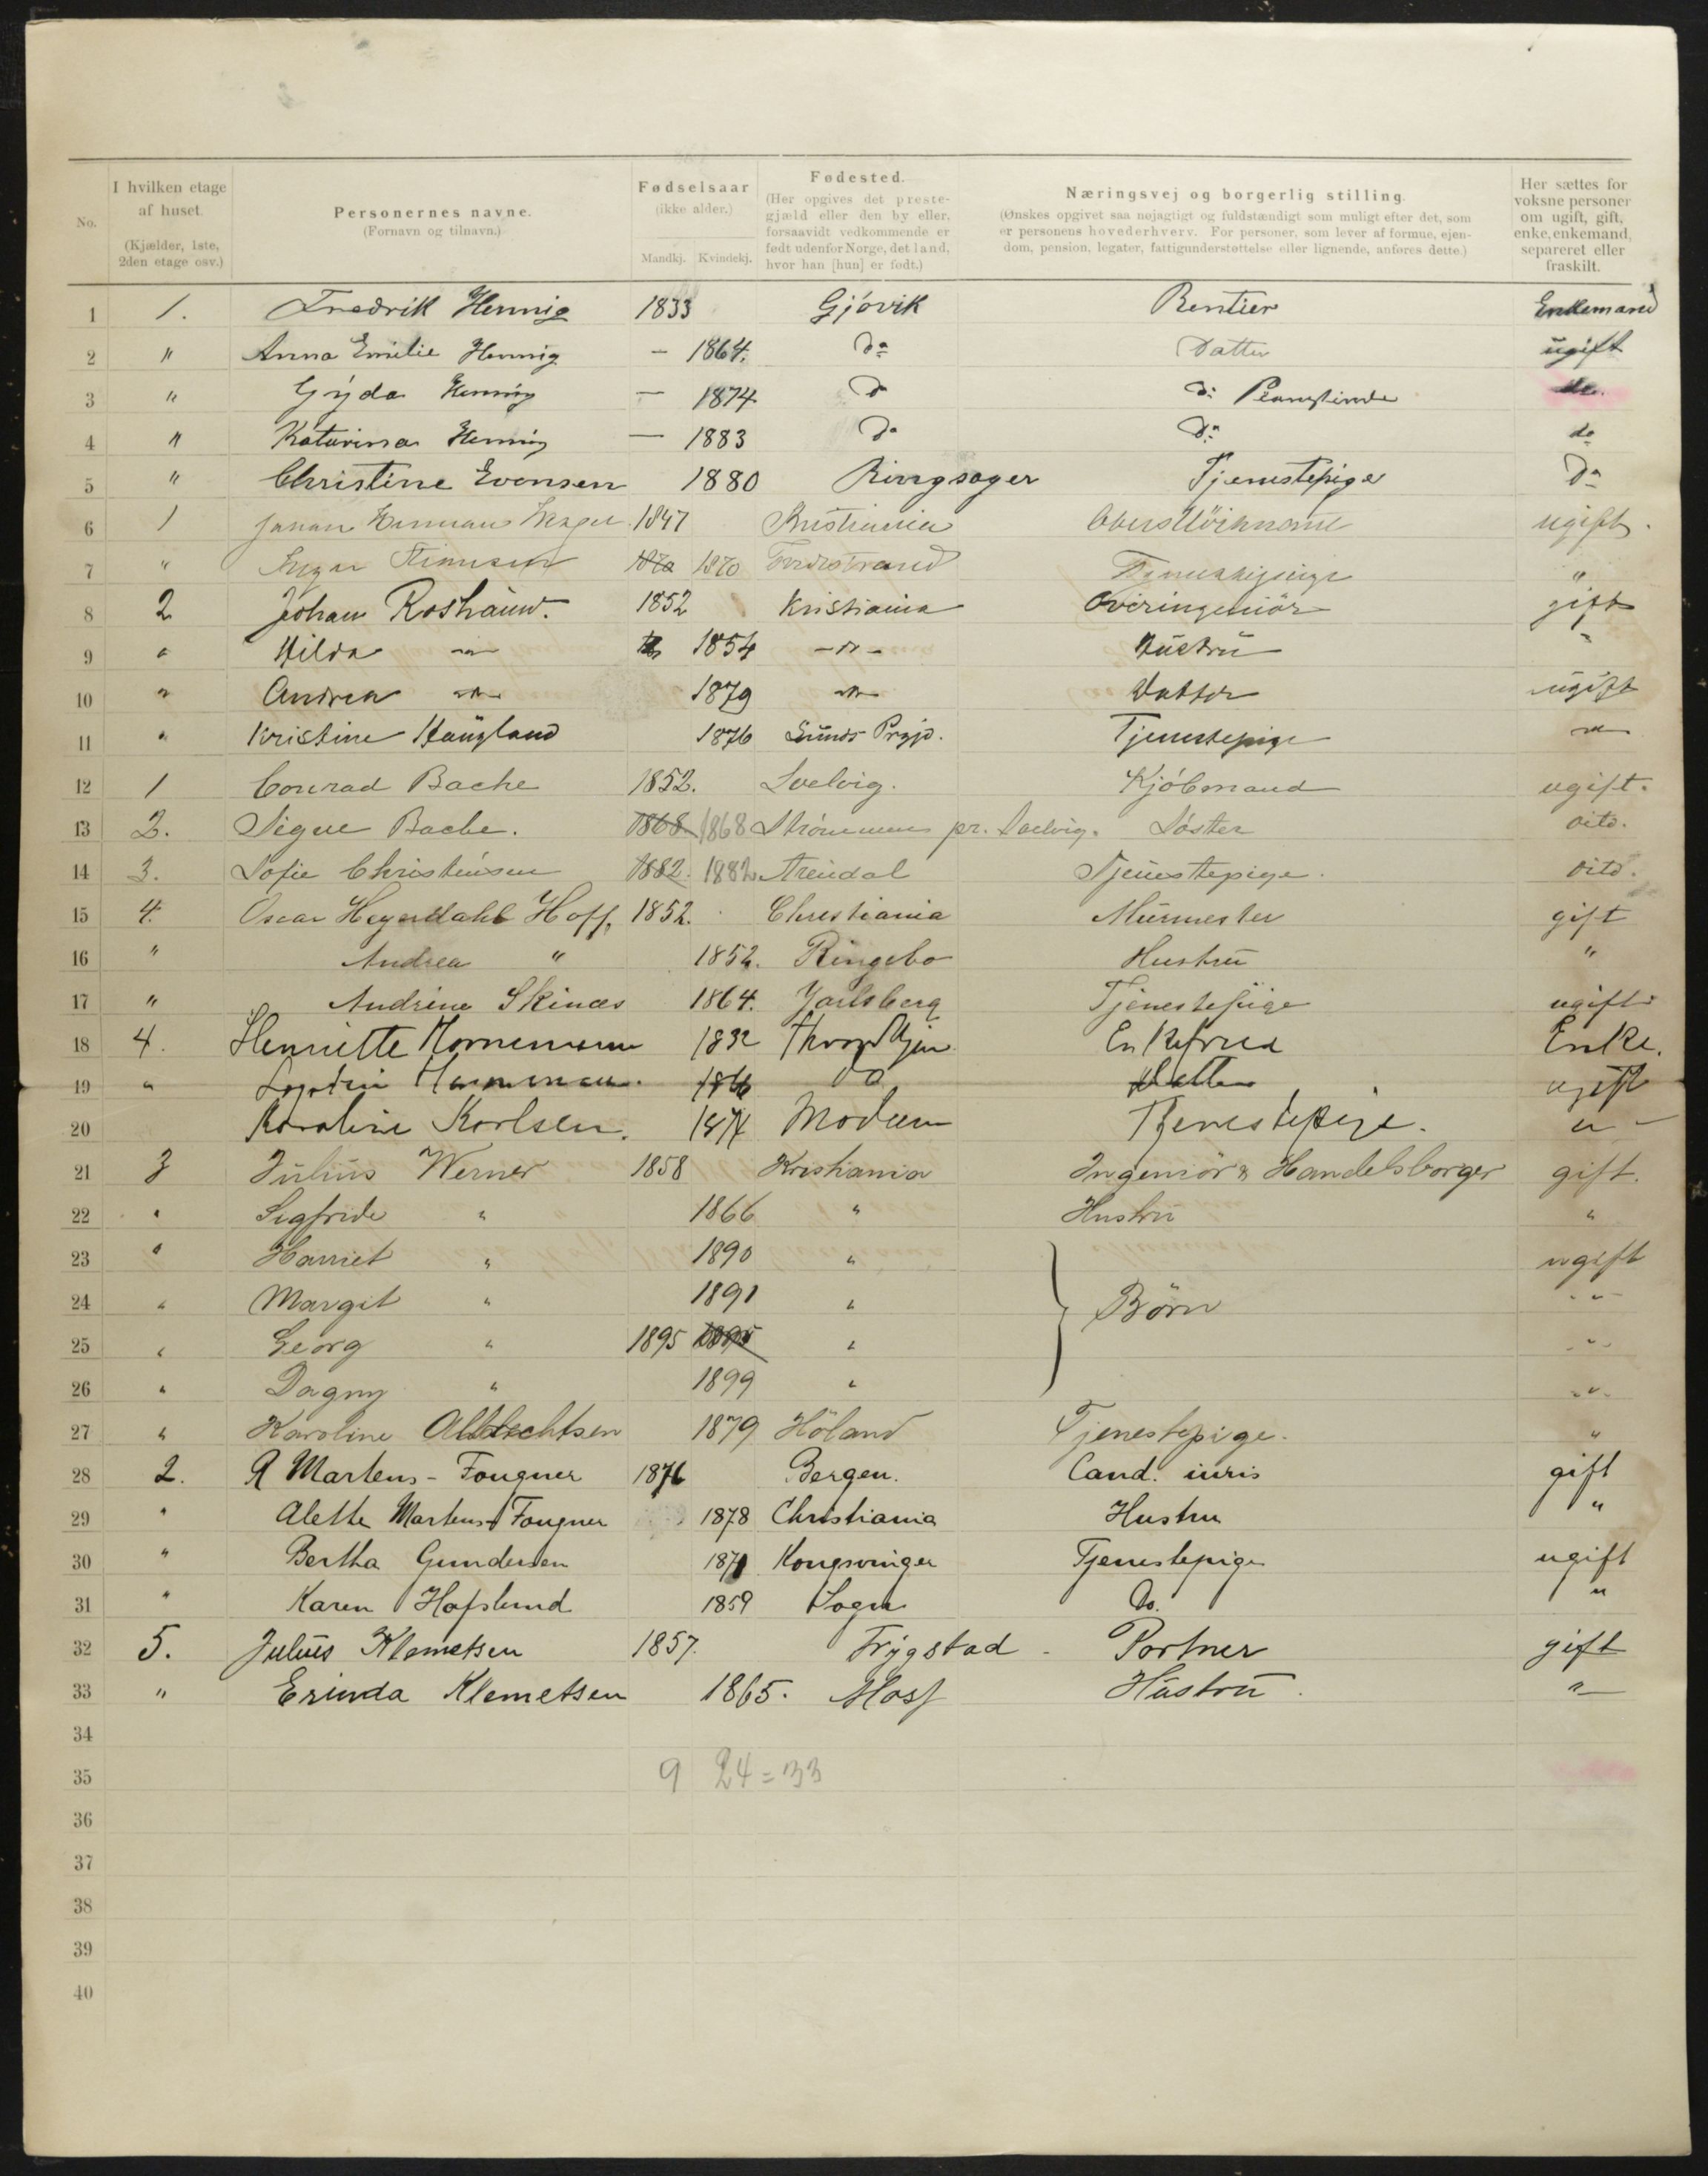 No. | I hvilken etage af huset. (Kjælder, 1ste, 2den etage osv.) | Personernes navne. (Fornavn og tilnavn.) | Fødselsaar (ikke alder.) Mandkj. Kvindekj. | Fødested. (Her opgives det prestegjæld eller den by eller, forsaavidt vedkommende er født udenfor Norge, det land, hvor han [hun] er født.) | Næringsvej og borgerlig stilling. (Ønskes opgivet saa nøjagtigt og fuldstændigt som muligt efter det, som er personens hovederhverv. For personer, som lever af formue, ejendom, pension, legater, fattigunderstøttelse eller lignende, anføres dette.) | Her sættes for voksne personer om ugift, gift, enke, enkemand, separeret eller fraskilt.
1 1. Fredrik Hennig 1833 Gjövik Rentier Enkemand
2 " Anna Emilie Hennig — 1864. Do Datter ugift
3 " Gyda Hennig — 1874 Do Do do.
4 " Katarina Hennig — 1883 Do Do do
5 " Christine Evensen 1880 Ringsager Tjenestepige Do
6 1 1847 Kristiania ugift.
7 " 1870 1870 Tjenestepige "
8 2 Johan Roshauw. 1852 Kristiania Overingeniör gift
9 " Hilda —"— 1854 —"— Hustru "
10 " Andrea —"— 1879 —"— Datter ugift
11 " Kristine Haugland 1876 Lunds Prgjd. Tjenestepige —"—
12 1 Conrad Bache 1852. Svelvig. Kjöbmand ugift.
13 2. Signe Bache. 1868 1868 Strömmen pr. Svelvig. Söster dito.
14 3. Sofie Christensen 1882. 1882 Arendal Tjenestepige. dito.
15 4. Oscar Heyerdahl Hoff, 1852. Christiania Murmester gift
16 " Andrea " 1852. Ringebo Hustru "
17 " Andrine Skinæs 1864. Jarlsberg Tjenestepige ugift
18 4. Henriette Hornemann 1832 Throndhjem Enkefrue Enke.
19 " Hornemann. 1866 do Datter ugift
20 Karoline Karlsen. 1874 Modum Tjenestepige. "–
21 3 Julius Werner 1858 Kristiania Ingeniör & Handelsborger gift.
22 " Sigfride " 1866 " Hustru "
23 " Harriet " 1890 " ugift
24 " Margit " 1891 " Börn -"-
25 " Georg " 1895 1895 " -"-
26 " Dagny " 1899 " -"-
27 " Karoline Albrechtsen 1879 Höland Tjenestepige. "
28 2. R Martens-Fougner 1876 Bergen. Cand. iuris gift
29 " Alette Martens-Fougner 1878 Christiania Hustru "
30 " Bertha Gundersen 1871 Kongsvinger Tjenestepige ugift
31 " Karen Hofslund 1859 Sogn Do. "
32 5. Julius Klemetsen 1857. Trygstad - Portner gift
33 " Erinda Klemetsen 1865. Moss Hustru. "
34
35 9 24 = 33
36
37
38
39
40